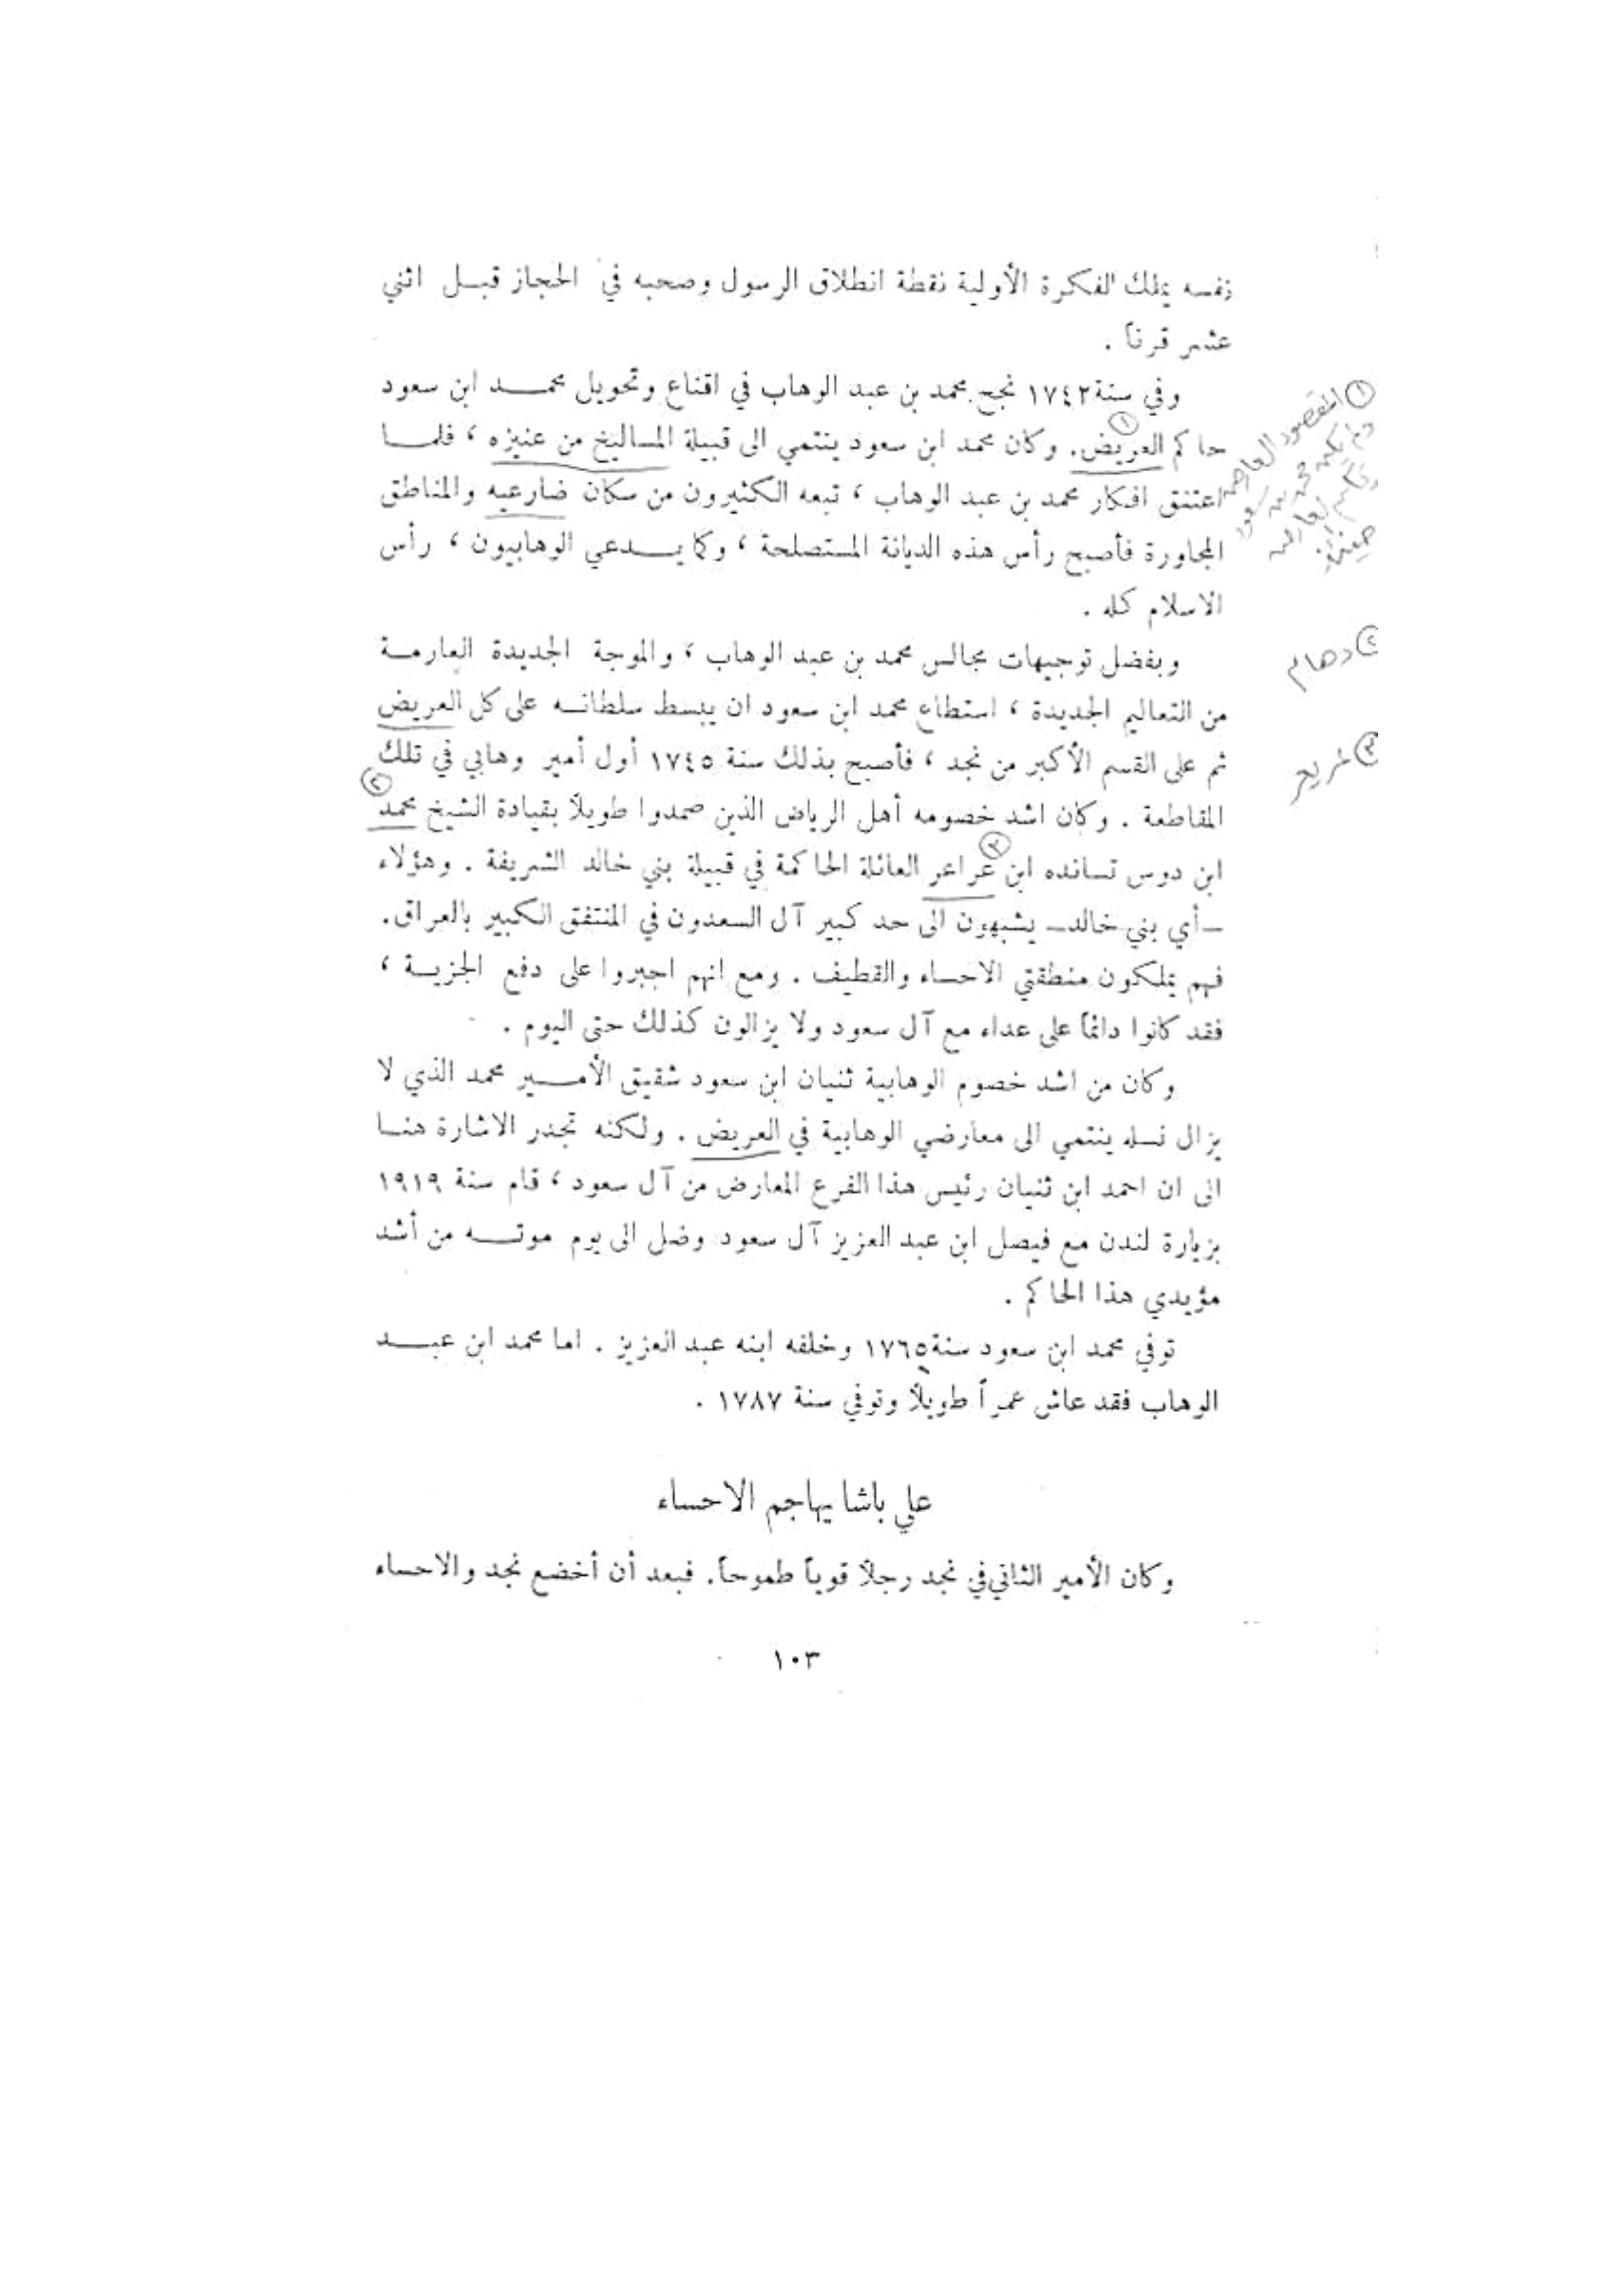 نفسه يملك الفكرة الأولية نقطة انطلاق الرسول وصحبه في الحجاز قبل اثني
عشر قرناً .
وفي سنة ١٧٤٢ نجح محمد بن عبد الوهاب في اقناع وتحويل محمد ابن سعود
حاكم العريض. وكان محمد ابن سعود ينتمي الى قبيلة المساليخ من عنيزه ، فلما
اعتنق افكار محمد بن عبد الوهاب ، تبعه الكثيرون من سكان ضارعيه والمناطق
المجاورة فأصبح رأس هذه الديانة المستصلحة ، وكما يدعي الوهابيون ، رأس
الاسلام كله .
وبفضل توجيهات مجالس محمد بن عبد الوهاب ، والموجة الجديدة العارمة
من التعاليم الجديدة ، استطاع محمد ابن سعود ان يبسط سلطانه على كل العريض
ثم على القسم الأكبر من نجد ، فأصبح بذلك سنة ١٧٤٥ أول أمير وهابي في تلك
المقاطعة . وكان اشد خصومه أهل الرياض الذين صمدوا طويلاً بقيادة الشيخ محمد
ابن دوس تسانده ابن عراعر العائلة الحاكمة في قبيلة بني خالد الشريفة . وهؤلاء
ـ أي بني خالد ـ يشبهون الى حد كبير آل السعدون في المنتفق الكبير بالعراق.
فهم يملكون منطقتي الاحساء والقطيف . ومع انهم اجبروا على دفع الجزية ،
فقد كانوا دائماً على عداء مع آل سعود ولا يزالون كذلك حتى اليوم .
وكان من اشد خصوم الوهابية ثنيان ابن سعود شقيق الأمير محمد الذي لا
يزال نسله ينتمي الى معارضي الوهابية في العريض . ولكنه تجدر الاشارة هنا
الى ان احمد ابن ثنيان رئيس هذا الفرع المعارض من آل سعود ، قام سنة ١٩١٩
بزيارة لندن مع فيصل ابن عبد العزيز آل سعود وضل الى يوم موته من أشد
مؤيدي هذا الحاكم .
توفي محمد ابن سعود سنة ١٧٦٥ وخلفه ابنه عبد العزيز . اما محمد ابن عبد
الوهاب فقد عاش عمراً طويلاً وتوفي سنة ١٧٨٧ .
علي باشا يهاجم الاحساء
وكان الأمير الثاني في نجد رجلاً قوياً طموحاً. فبعد أن أخضع نجد والاحساء
١٠٣
① المقصود العارض
ولم يكن محمد بن سعود
حاكم العارض
حينئذ
② دهام